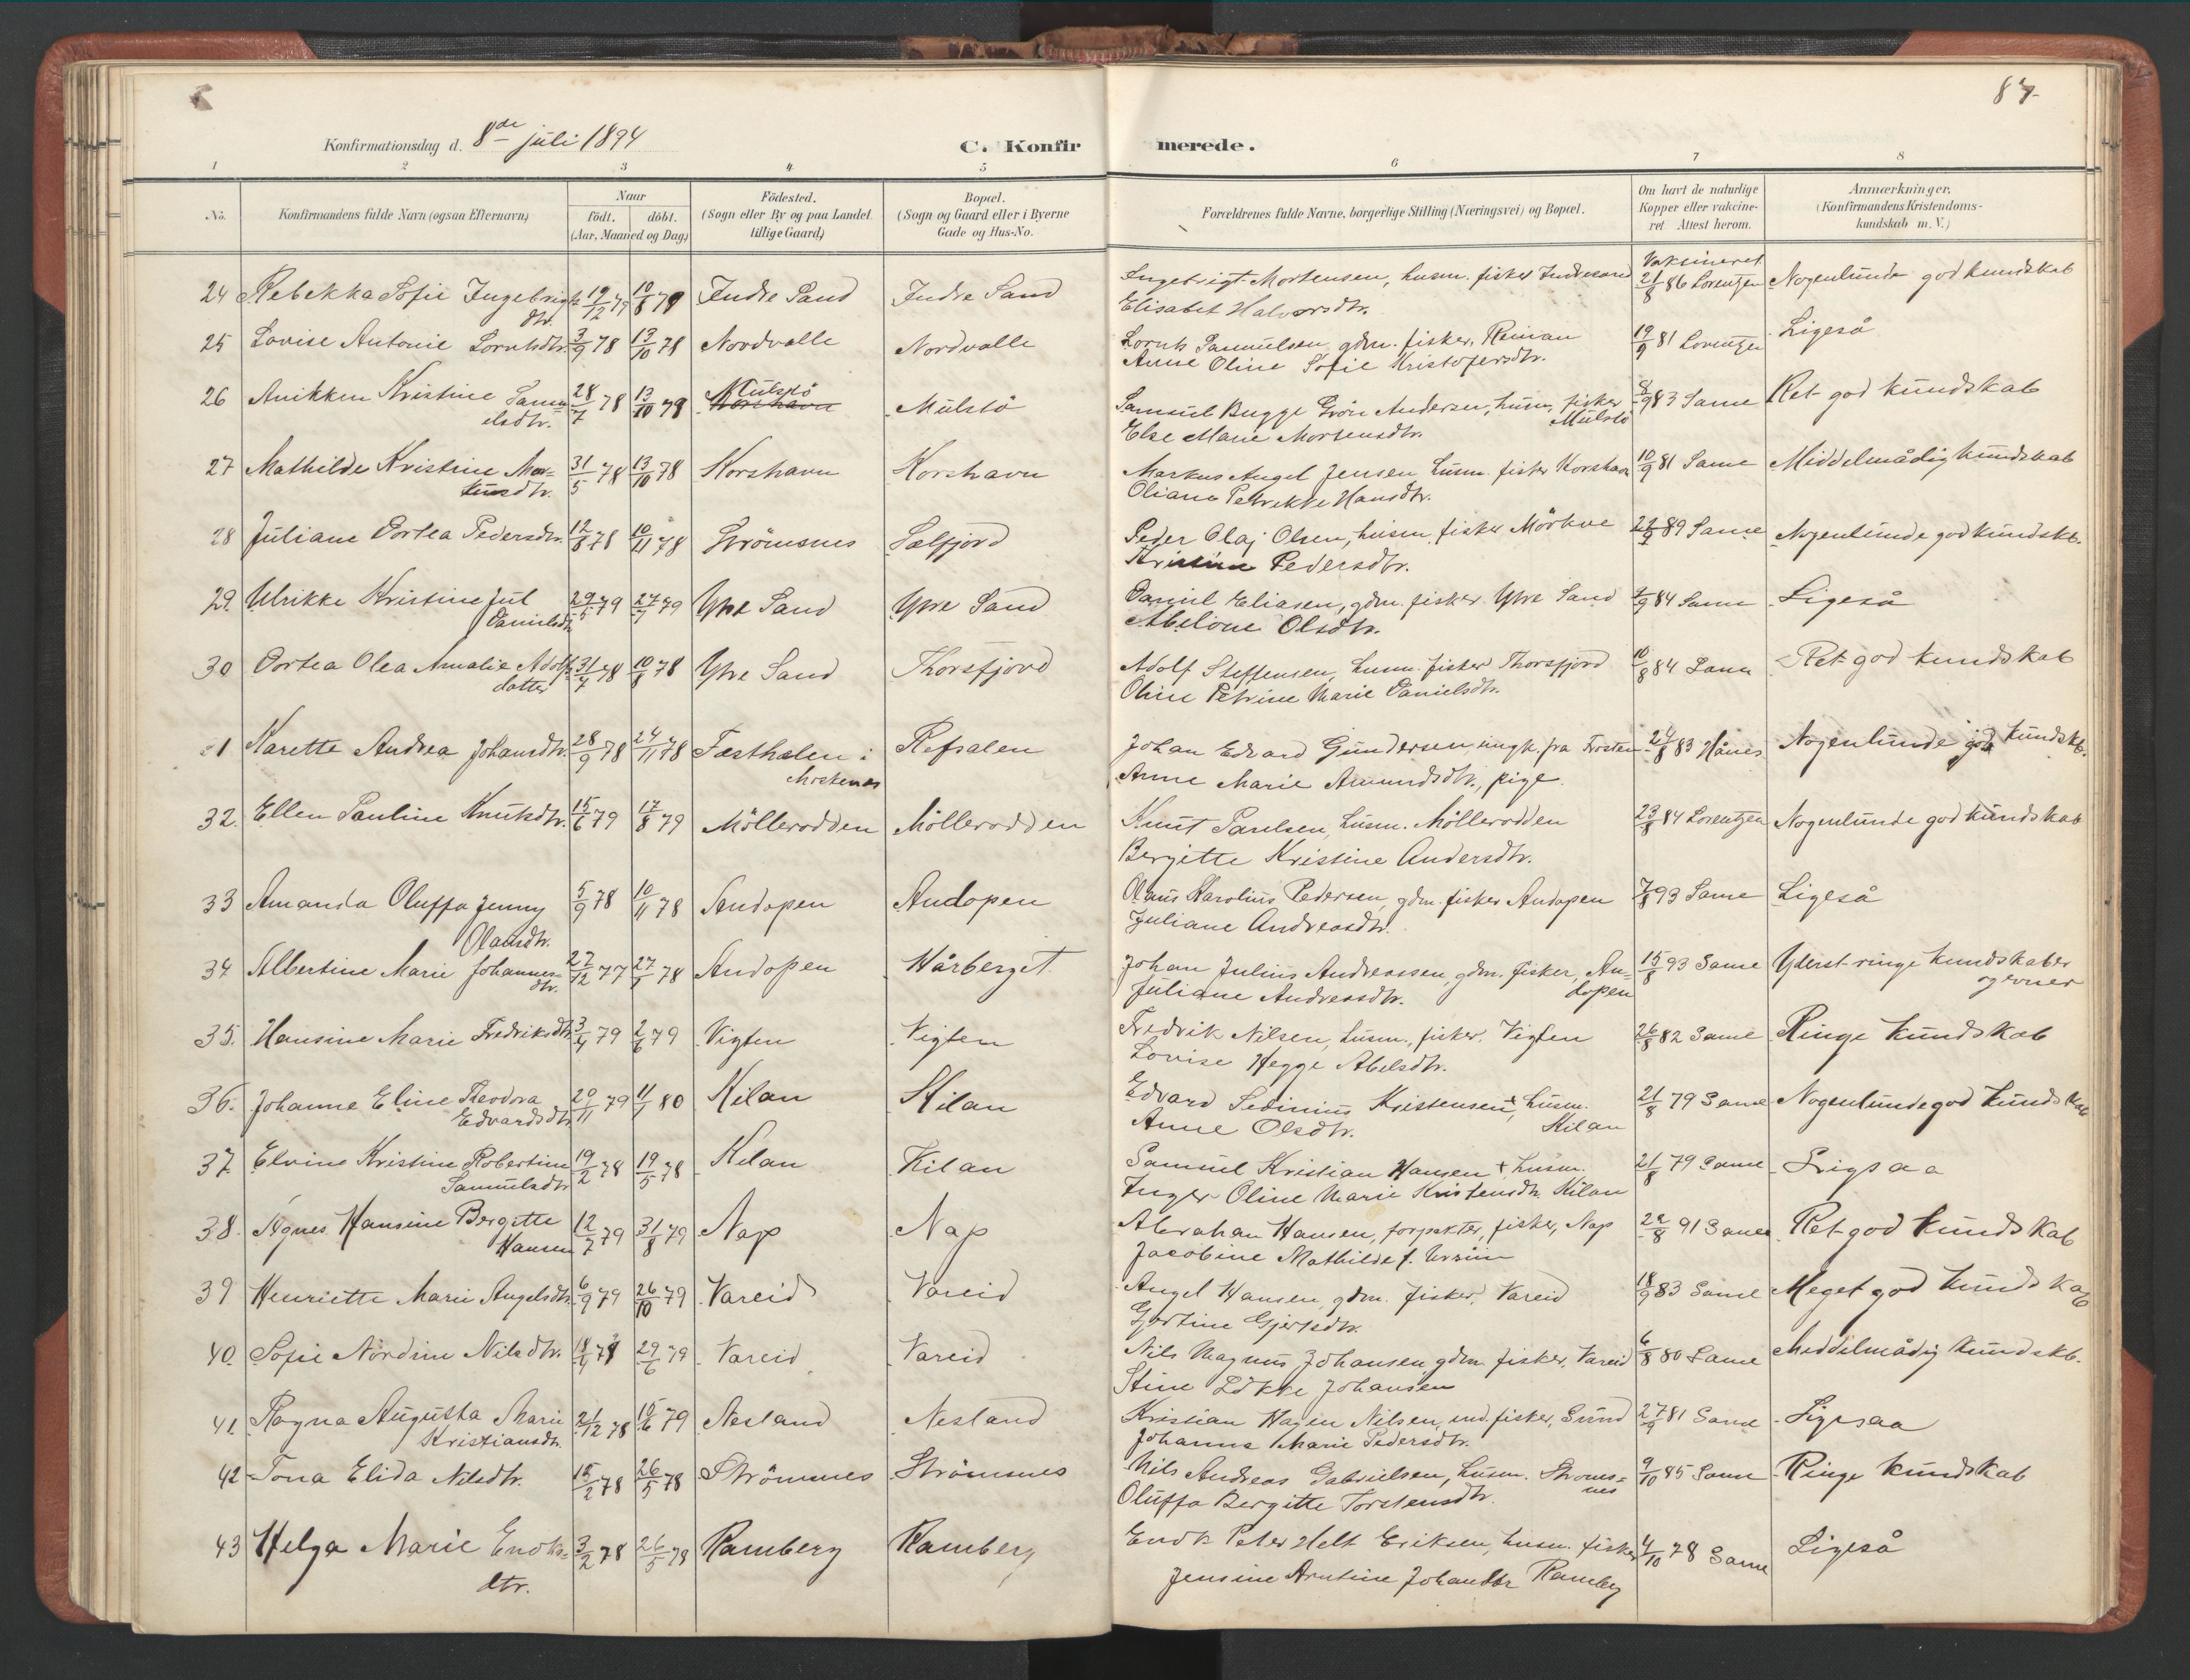 87
Konfirmationsdag d. 8de juli 1894
C. Konfirmerede.
1 2 3 4 5 6 7 8
No. Konfirmandens fulde Navn (ogsaa Efternavn) Naar födt. döbt. (Aar, Maaned og Dag) Födested. (Sogn eller By og paa Landet tillige Gaard) Bopæl. (Sogn og Gaard eller i Byerne Gade og Hus-No. Forældrenes fulde Navne, borgerlige Stilling (Næringsvei) og Bopæl. Om havt de naturlige Kopper eller vakcineret Attest herom. Anmærkninger. (Konfirmandens Kristendomskundskab m. V.)
Vaksineret
24 Rebekka Sofie Ingebrigts 19/12 79 10/8 79 Indre Sand Indre Sand Ingebrigt Mortensen, husm. fisker Indresand 21/8 86 Lorentzen Nogenlunde god kundskab
dtr. Elisabet Halvorsdtr.
25 Lovise Antonie Lorntsdtr. 3/9 78 13/10 78 Nordvalle Nordvalle Lornts Samuelsen, gdm. fisker, Reinan 19/9 81 Lorentzen Ligeså
Anne Oline Sofie Kristofersdtr.
26 Anikken Kristine Samu 28/7 78 13/10 78 Mulstö Mulstö Samuel Bugge Grön Andersen, husm. fisker 8/9 83 Same Ret god kundskab
elsdtr. Korshavn Mulstö
Else Marie Mortensdtr.
27 Mathilde Kristine Mar= 31/5 78 13/10 78 Korshavn Korshavn Markus Angel Jensen husm. fisker Korshavn 10/9 81 Same Middelmådig kundskab
kusdtr. Oliana Petrikke Hansdtr.
28 Juliane Dortea Pedersdtr. 12/8 78 10/11 78 Strömsnes Selfjord Peder Olaj Olsen, husm. fisker Mörkve 89 Same Nogenlunde god kundskb.
Kristine Pedersdtr.
29. Ulrikke Kristine Jul 29/5 79 27/7 79 Ytre Sand Ytre Sand Daniel Eliasen, gdm. fisker Ytre Sand 84 Same Ligeså
Danielsdtr. Abelone Olsdtr.
30 Dortea Olea Amalie Adolfs 31/7 78 10/8 78 Ytre Sand Thorsfjord Adolf Steffensen, husm. fisker Thorsfjord 10/8 84 Same Ret god kundskab
datter Oline Petrine Marie Danielsdtr.
31 Karette Andrea Johansdtr. 28/9 78 24/11 78 Festhelen i Refsalen Johan Edvard Gundersen, ungk. fra Trosten 24/8 83 Hånes Nogenlunde god kundskb.
Moskenes Anne Marie Amundsdtr., pige
32. Ellen Pauline Knutsdtr. 15/6 79 17/8 79 Möllerodden Möllerodden Knut Paulsen, husm. Möllerodden 23/8 84 Lorentzen Nogenlunde god kundskab
Bergitte Kristine Andersdtr.
33 Amanda Oluffa Jenny 5/9 78 10/11 78 Andopen Andopen Olaus Karolius Pedersen, gdm. fisker Andopen 7/8 93 Same Ligeså
Olausdtr. Juliane Andreasdtr.
34 Albertine Marie Johannes= 27/12 77 27/1 78 Andopen Hårberget Johan Julius Andreassen, gdm. fisker, An= 15/8 93 Same Yderst ringe kundskaber
dtr. dopen og evner
Juliane Andreasdtr.
35. Hansine Marie Fredriksdtr 3/4 79 2/6 79 Vigten Vigten Fredrik Nilsen, husm., fisker. Vigten 26/8 82 Same Ringe kundskab
Lovise Hegge Abelsdtr.
36. Johanne Eline Theodora 20/11 79 11/1 80 Kilan Kilan Edvard Sedinius Kristensen +, husm. 21/8 79 Same Nogenlunde god kundskab
Edvardsdtr Anne Olsdtr. Kilan
37. Elvine Kristine Robertine 19/2 78 19/5 78 Kilan Kilan Samuel Kristian Hansen + husm. 21/8 79 Same Ligsaa
Samuelsdtr Inger Oline Marie Kristensdtr. Kilan
38. Agnes Hansine Bergitte 12/7 79 31/8 79 Nap Nap Abraham Hansen, forpakter, fisker, Nap 91 Same Ret god kundskab
Hansen Jacobine Mathilde f. Ursiin
39 Henriette Marie Angelsdtr. 6/9 79 26/10 79 Vareid Vareid Angel Hansen, gdm. fisker, Vareid 18/9 83 Same Meget god kundskab
Gjertine Gjertsdtr.
40. Sofie Nordine Nilsdtr. 79 29/6 79 Vareid Vareid Nils Magnus Johansen, gdm. fisker, Vareid 6/8 80 Same Middelmådig kundskb.
Stine Lökke Johansen
41. Ragna Augusta Marie 21/12 78 15/6 79 Nesland Nesland Kristian Hagen Nilsen, ind. fisker, Sund 27/9 81 Same Ligesaa
Kristiansdtr. Johanna Marie Pedersdtr.
42 Tona Elida Nilsdtr. 15/2 78 26/5 78 Strömsnes Strömsnes Nils Andreas Gabrielsen, husm. Stroms= 9/10 85 Same Ringe kundskab
nes
Oluffa Bergitte Torstensdtr.
43 Helga Marie Enoks= 3/2 78 26/5 78 Ramberg Ramberg Enok Peter Helt Eriksen, husm. fisker 4/10 78 Same Ligeså
dtr. Jensine Arntine Johansdtr Ramberg